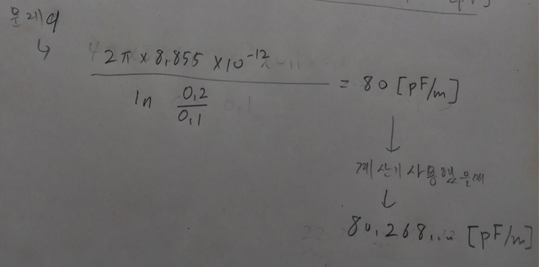 문제 9
↳
2π × 8.855 × 10⁻¹²
ln 0.2/0.1
= 80 [pF/m]
↓
계산기 사용했을때
↓
80.268... [pF/m]